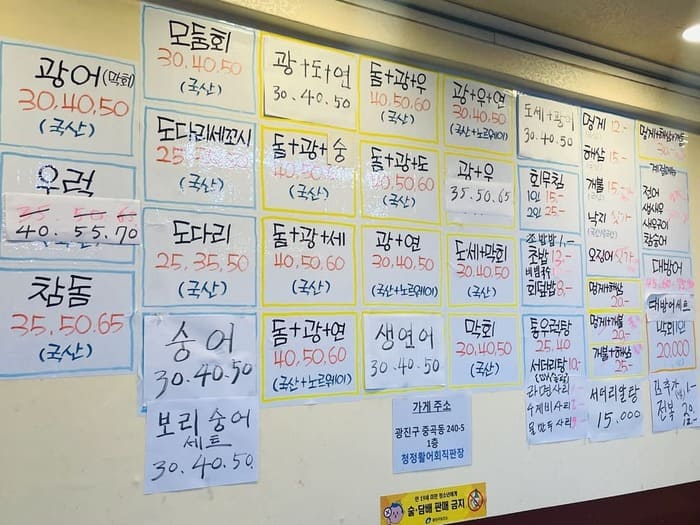 광어(막회)
30,40,50
(국산)
우럭
35. 50. 65
40. 55. 70
참돔
35,50.65
(국산)
모둠회
30.40.50
(국산)
도다리세꼬시
(국산)
도다리
25,35,50
(국산)
숭어
30.40.50
보리숭어
세트
30.40.50
광+도+연
30.40.50
돔+광+숭
40,50,60
(국산)
돔+광+세
40,50,60
(국산)
돔+광+연
40,50,60
(국산+노르웨이)
돔+광+우
40,50,60
(국산)
돔+광+도
40,50,60
(국산)
광+연
30,40,50
(국산+노르웨이)
생연어
30.40.50
광+우+연
30,40,50
(국산+노르웨이)
광+우
35.50.65
도세+막회
30,40,50
(국산)
막회
30,40,50
(국산)
도세+광어
30.40.50
회무침
1인 15-
2인 25-
초밥
회덮밥
통우럭탕
25.40
서더리탕 10-
라면사리
수제비사리
멍게 12-
해삼 15-
개불 15-
낙지 싯가
오징어 싯가
멍게+해삼
20-
멍게+개불
개불+해삼
25-
서더리알탕
15,000
멍게+해삼+개불
전어
생새우
대방어
대방어세트
20,000
전복
가게 주소
광진구 중곡동 240-5
1층
청정활어회직판장
만 19세 미만 청소년에게
술·담배 판매 금지